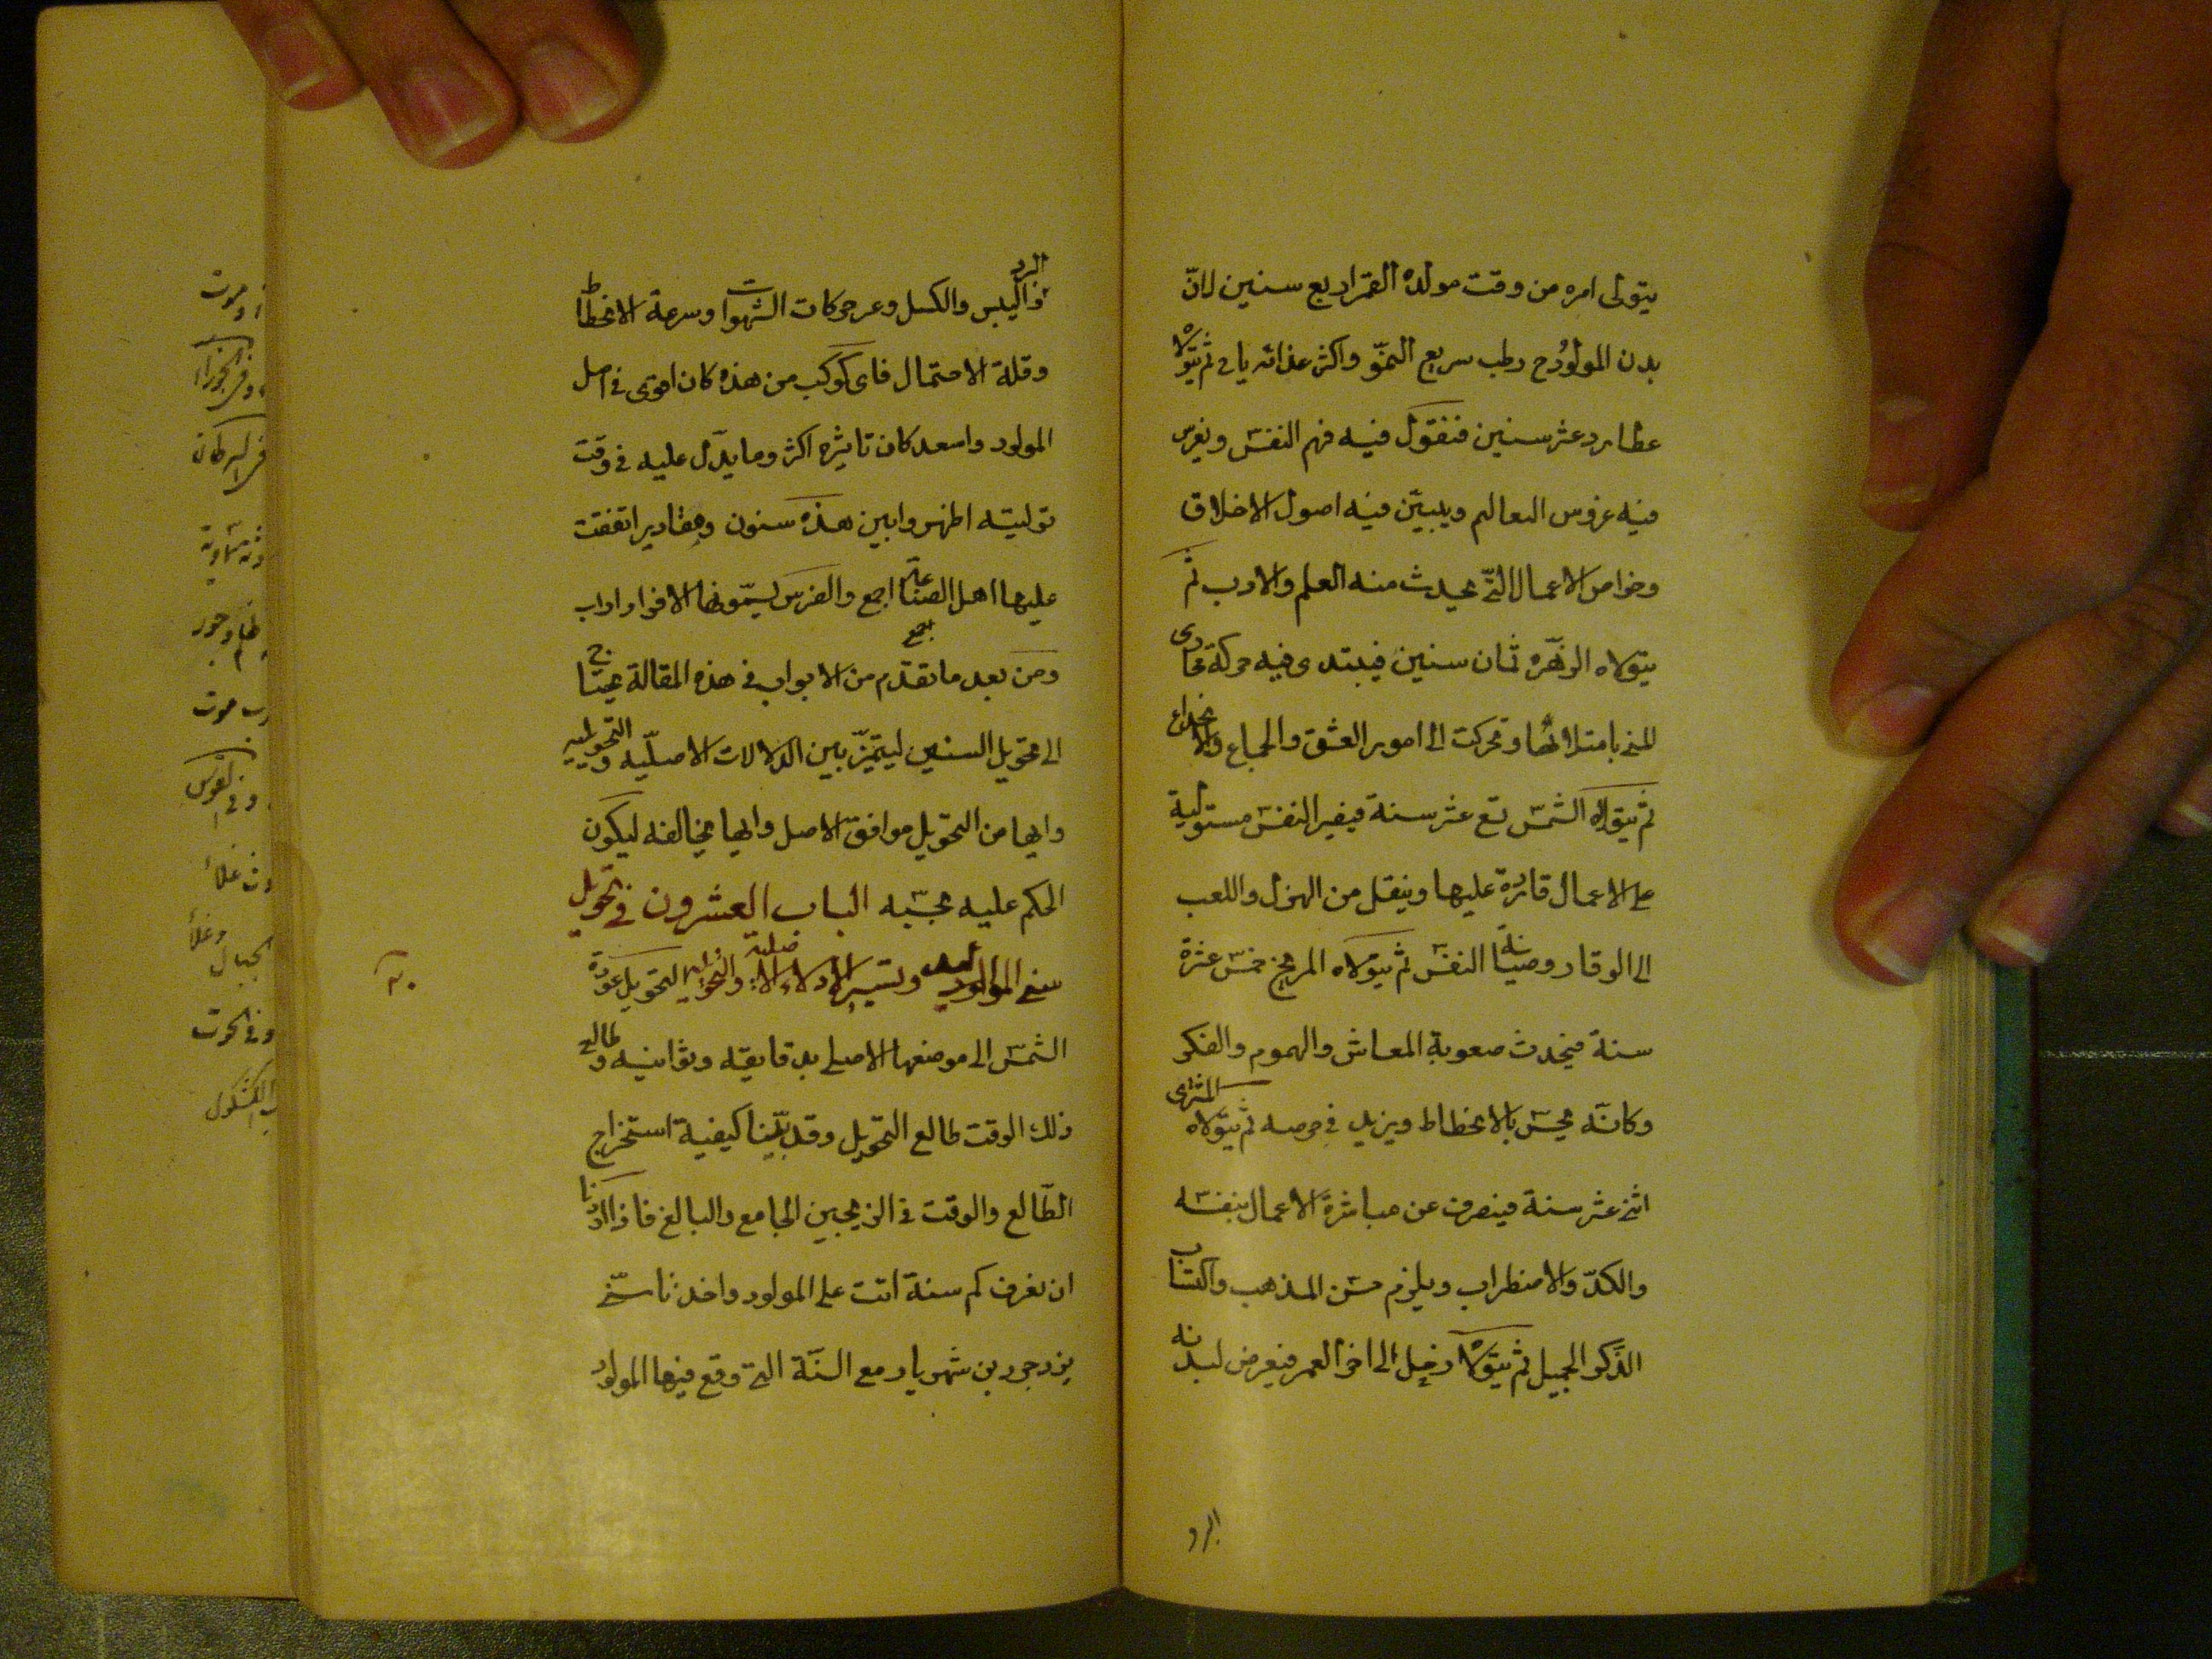 يتولى امره من وقت مولده القمر اربع سنين لانّ
بدن المولود ح رطب سريع النموّ واكثر غذائه ثم يتولاه
عطارد عشر سنين فيه فهم النفس ويغرس
فيه غروس التعاليم ويبيّن فيه اصول الاخلاق
وخواص الاعمال التى يحدث منه العلم والادب ثم
يتولاه الزهره ثمان سنين فيبتدى فيه حركة مجارى
المنى بامتلائها وتحركت الى امور العشق والجماع والانخداع
ثم يتولاه الشمس تسع عشر سنة فيصير النفس مستولية
على الاعمال قادرة عليها وينقل من الهزل واللعب
الى الوقار وصيانة النفس ثم يتولاه المريخ خمس عشرة
سنة فيحدث صعوبة المعاش والهموم والفكر
وكانّه يحسّ بالانحطاط ويزيد فى حرصه ثم يتولاه المشترى
اثنى عشر سنة فينصرف عن مباشرة الاعمال بنفسه
والكدّ والاضطراب ويلزم حسن المذهب واكتساب
الذّكر الجميل ثم يتولاه زحل الى اخر العمر فيعرض لبدنه
البرد
البرد واليبس والكسل وعسر حركات الشهوات وسرعة الانحطاط
وقلة الاحتمال فاى كوكب من هذه كان اقوى فى اصل
المولود واسعد كان تاثيره اكثر وما يدلّ عليه فى وقت
توليته اظهر وابين هذه سنون ومقادير اتفقت
عليها اهل الصناعة اجمع والفرس يسمّونها
ومن بعد ما تقدّم من الابواب فى هذه المقالة يحتاج
الى تحويل السنين ليتميّز بين الدلالات الاصليّه والتحويليه
وايها من التحويل موافق الاصل وايها مخالفه ليكون
الحكم عليه بحسبه الباب العشرون فى تحويل
سنى المواليد وتسيير الادلاء الاصليه والتحويليه التحويل عودة
الشمس الى موضعها الاصلى بدقايقه وثوانيه وطالع
ذلك الوقت طالع التحويل وقد بيّنا كيفية استخراج
الطالع والوقت فى الزيجين الجامع والبالغ فاذا اردنا
ان نعرف كم سنة اتت على المولود واخذنا سنى
يزدجرد بن شهريار مع السنة التى وقع فيها المولود